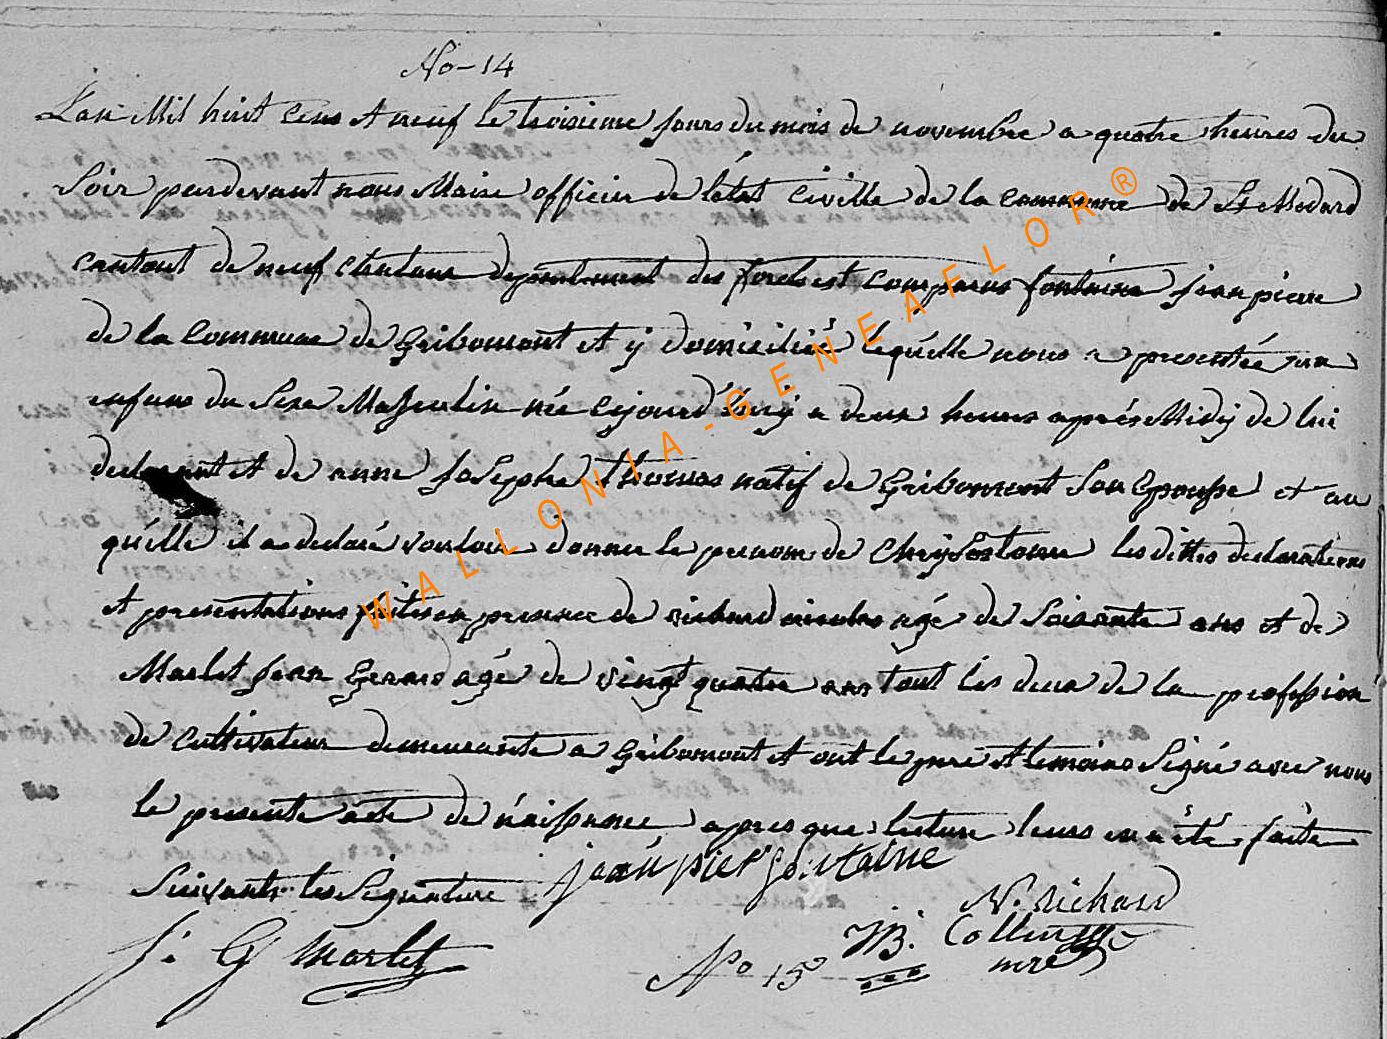 No-14
L'an Mil huit cens et neuf le troisieme jours du mois de novembre a quatre heures du
Soir pardevant nous Maire officier de l'état civille de la commune de St Medard
cantont de neufchateau departement des forets est comparus fontaine jean pierre
de la commune de Gribomont et y domicilié lequélle nous a presentée un
enfans du Sexe Masculin née cejourd'huy a deux heures aprés Midy de lui
declarant et de anne joSephe thomas natif de Gribomont Son Epousse et au
quélle il a declaré vouloir donner le prenom de ChrySostome les dittes declarations
et presentations faites en presence de richard nicolas agé de Soisante ans et de
Marlet jean Gerard agé de vingt quatre ans tout les deux de la profession
de cultivateur demeurante a Gribomont et ont le pere et temoins Signé avec nous
le presente acte de náissance apres que lecture leurs en a été faite
Suivante les Signature jean pier fontaine
N. Richard
j. G Marlet
No 15 JB. Collignon
mre
WALLONIA-GENEAFLOR®